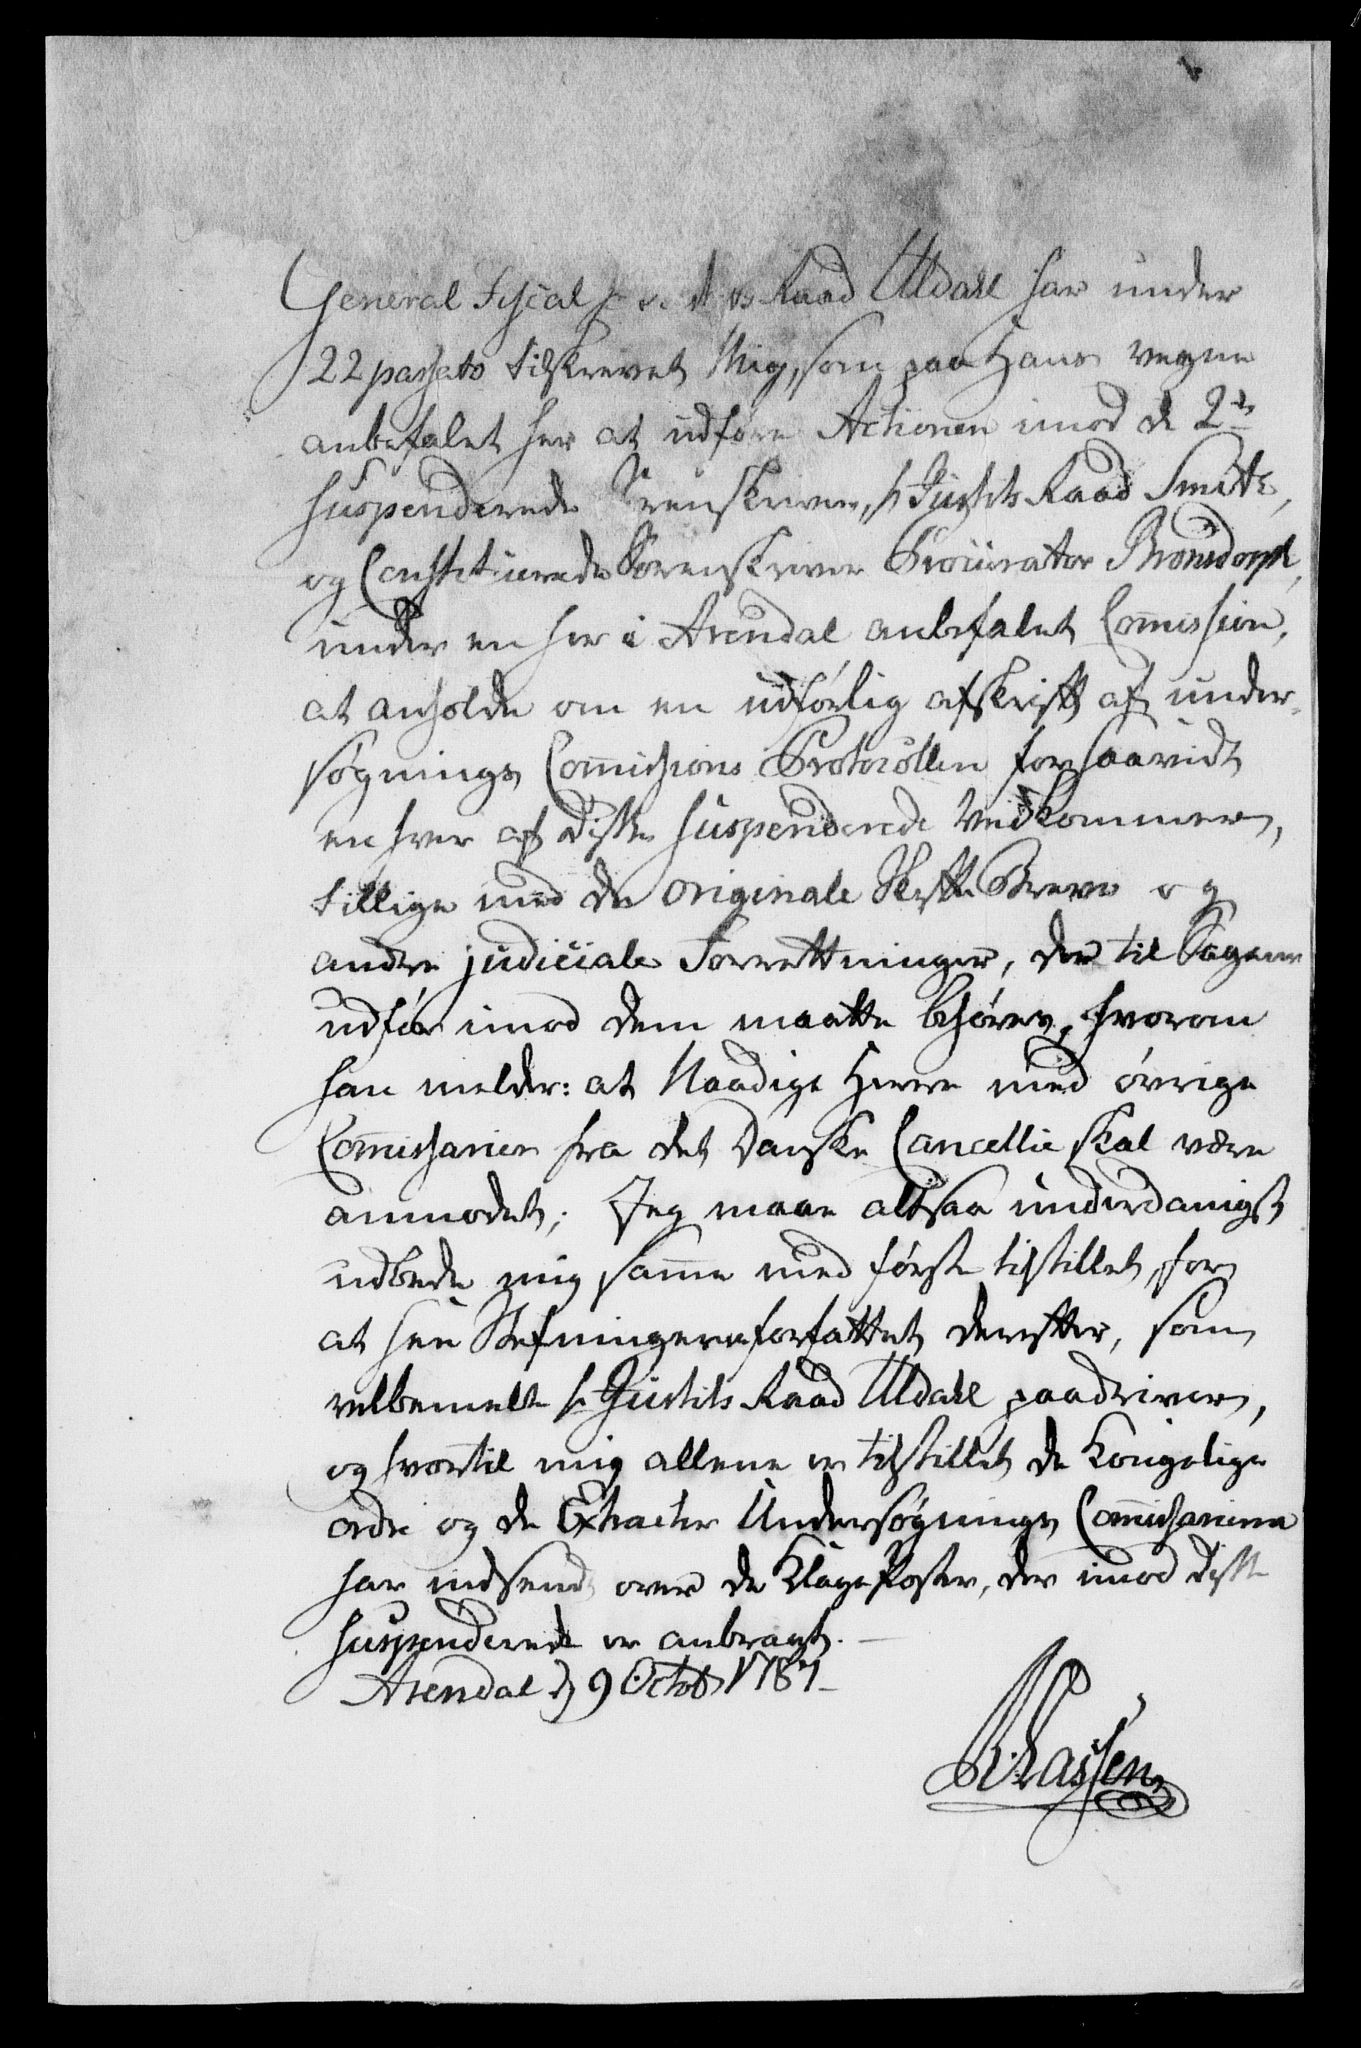 General Fiscal Raad Uldall har under
22 passato tilskrevet Mig, som paa Hans vegne
anbefalet her at udføre Actionen imod de 2de
suspenderede Sorenskrivere, hr Justits Raad Smith,
og Constituerede Sorenskriver Procurator Bronsdorph,
under en her i Arendal anbefalet Commission,
at anholde om en udførlig afskrift af under-
søgnings Commissions Protocollen forsaavidt
enhver af disse suspenderede vedkommer,
tillige med de originale Skifte Breve og
andre judiciale Forrettninger, der til Sagens
udfør imod dem maatte behøves, hvorom
han melder: at Naadige Herre med øvrige
Commissarier fra det Danske Cancellie skal være
anmodet; Jeg maae altsaa underdanigst
udbede mig samme med første tilstillet, for
at see Stefningerne forfattet derefter, som
velbemelte hr Justits Raad Uldall paadriver,
og hvortil mig allene er tilstillet de Kongelige
ordre og de Extracter Undersøgnings Commissarierne
har indsendt over de Klage Poster, der imod disse
suspenderede er anbragt.
Arendal d 9 Octob 1787
B. Lassen